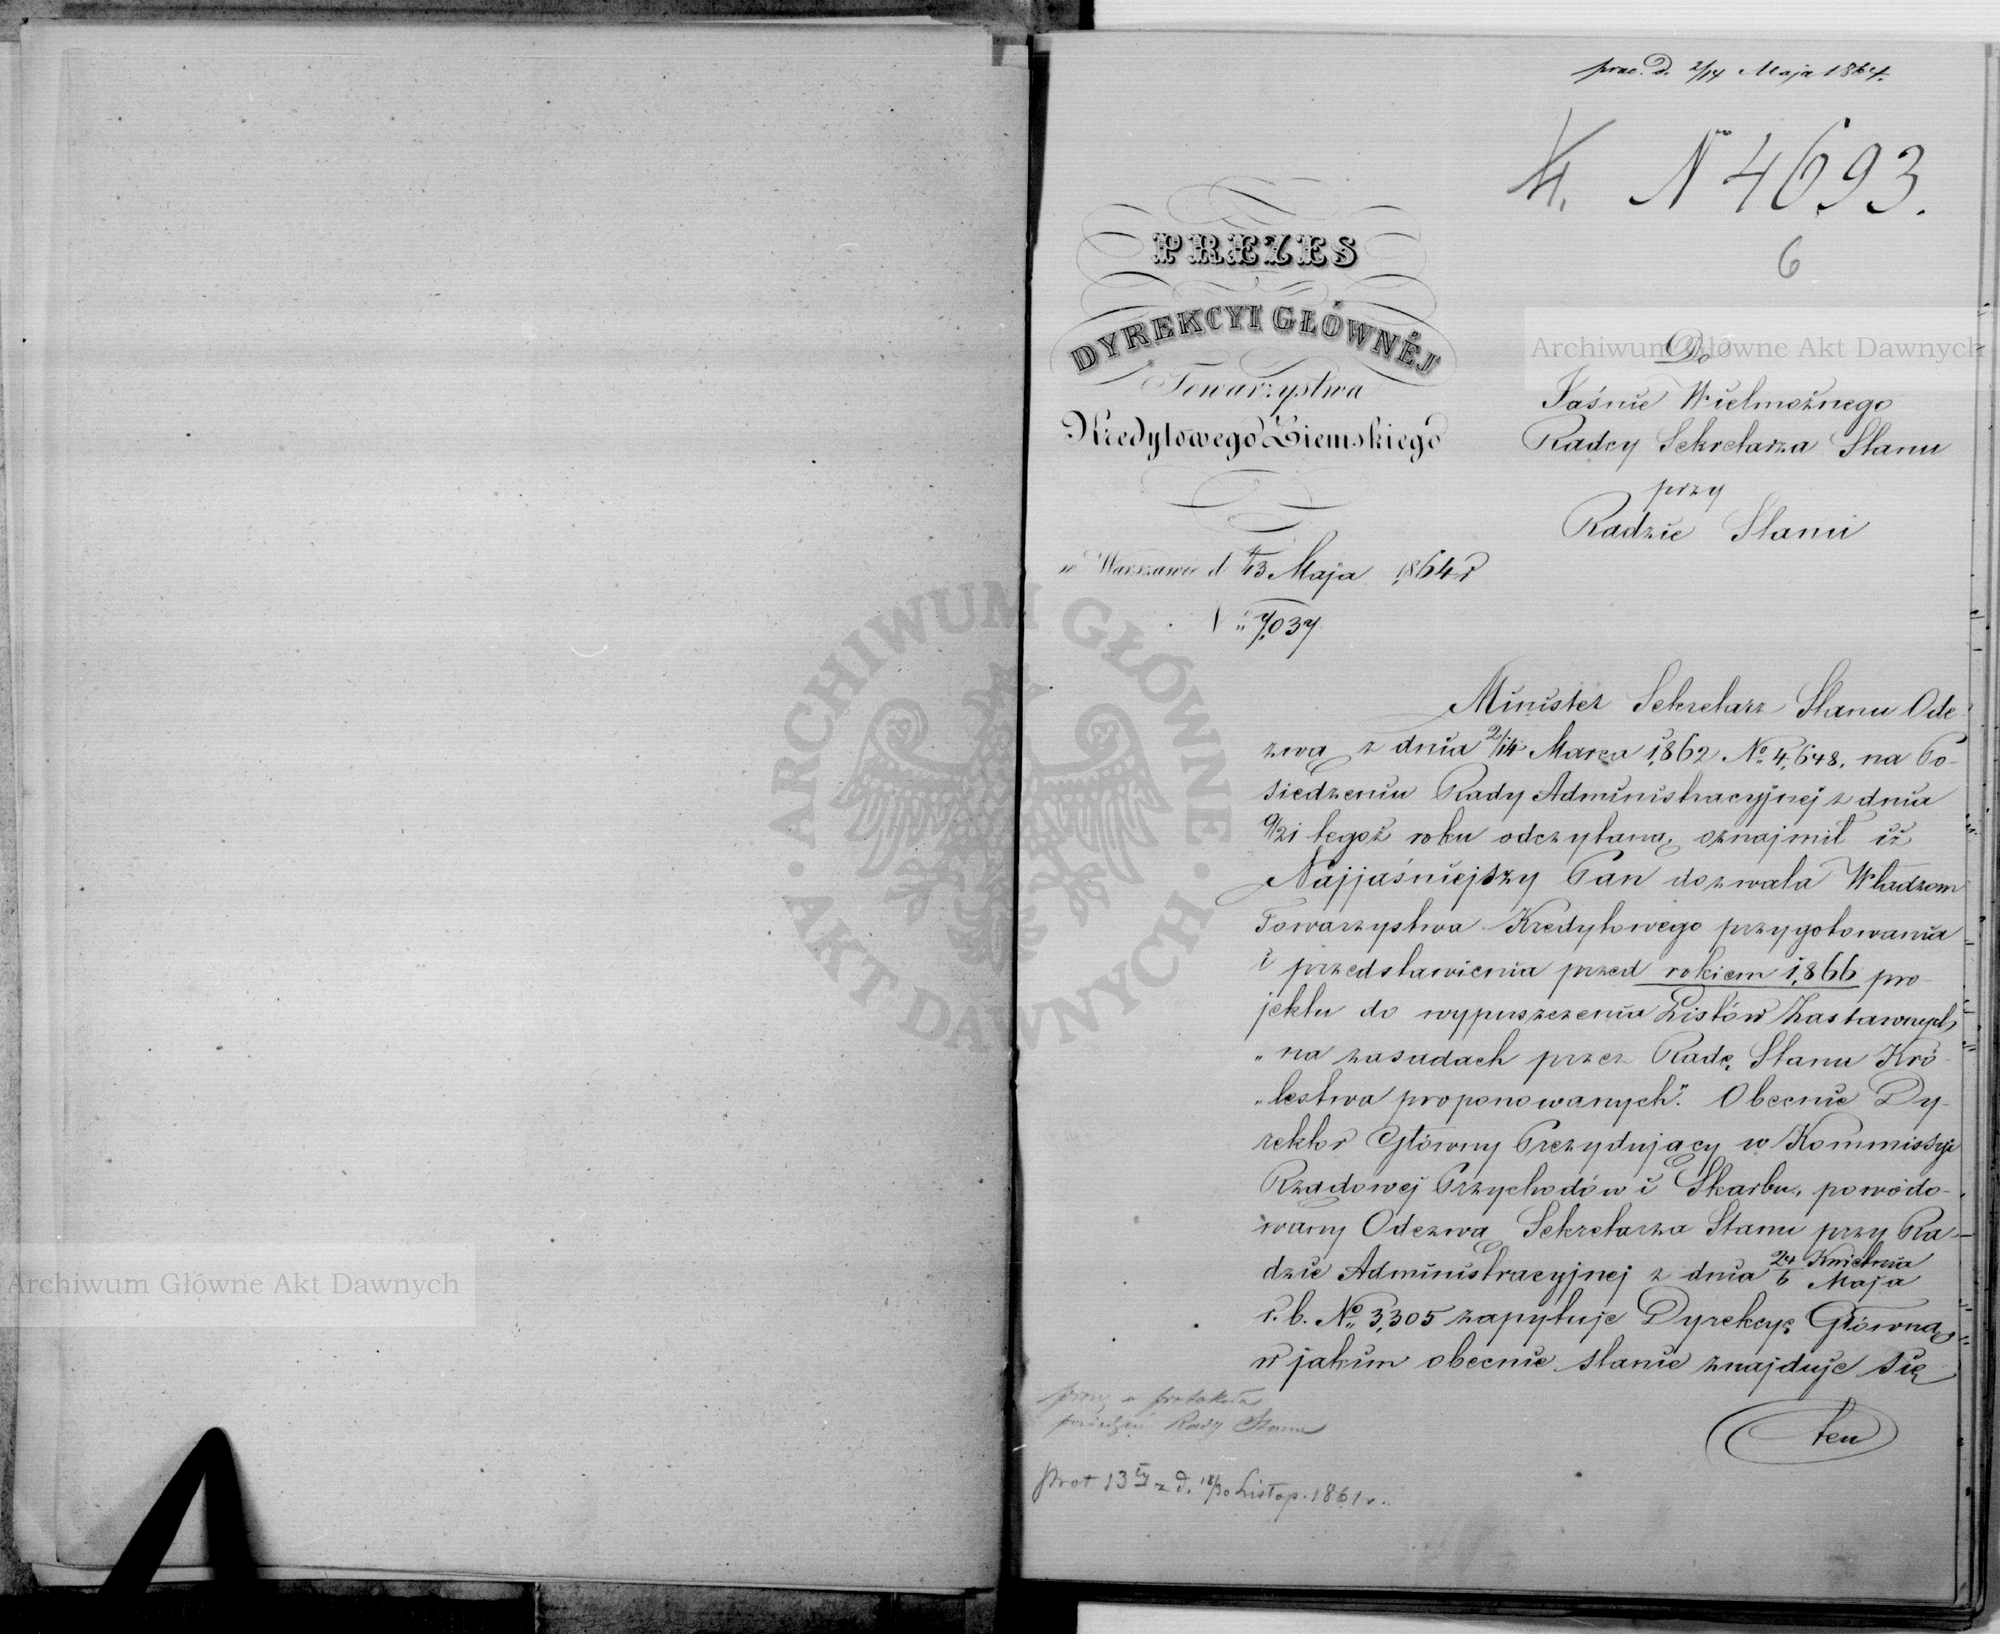 prae. d. 2/14 Maja 1864.
N 4693.
6
PREZES
DYREKCYI GŁÓWNÉJ
Towarzystwa
Kredytowego Ziemskiego
w Warszawie d 1/13 Maja 1864 r
N° 7,037
Do
Jaśnie Wielmożnego
Radcy Sekretarza Stanu
przy
Radzie Stanu
Minister Sekretarz Stanu Ode
zwą z dnia 2/14 Marca 1,862 N° 4,648, na Po-
siedzeniu Rady Administracyjnej z dnia
9/21 tegoż roku odczytaną, oznajmił iż
Najjaśniejszy Pan dozwala Władzom
Towarzystwa Kredytowego przygotowania
i przedstawienia przed rokiem 1,866 pro-
jektu do wypuszczenia Listów Zastawnych
„na zasadach przez Radę Stanu Kró-
„lestwa proponowanych". Obecnie Dy-
rektor Główny Prezydujący w Kommissyi
Rządowej Przychodów i Skarbu, powodo-
wany Odezwą Sekretarza Stanu przy Ra-
dzie Administracyjnej z dnia 24 Kwietnia
6 Maja
r. b. N° 3,305 zapytuje Dyrekcyę Główną
w jakim obecnie stanie znajduje się
ten
proszę o protokuła
posiedzeń Rady Stanu
Prot 13ty z d. 18/30 Listop. 1861 r.
Archiwum Główne Akt Dawnych
Archiwum Główne Akt Dawnych
ARCHIWUM GŁÓWNE
AKT DAWNYCH